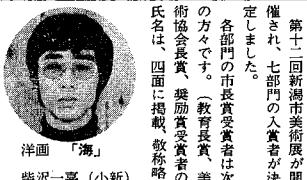 第十二回新潟市美術展が開
催され、七部門の入賞者が決
定しました。
各部門の市長賞受賞者は次
の方々です。（教育長賞、美
術協会長賞、奨励賞受賞者の
氏名は、四面に掲載、敬称略
洋画　「海」
柴沢一嘉（小新）